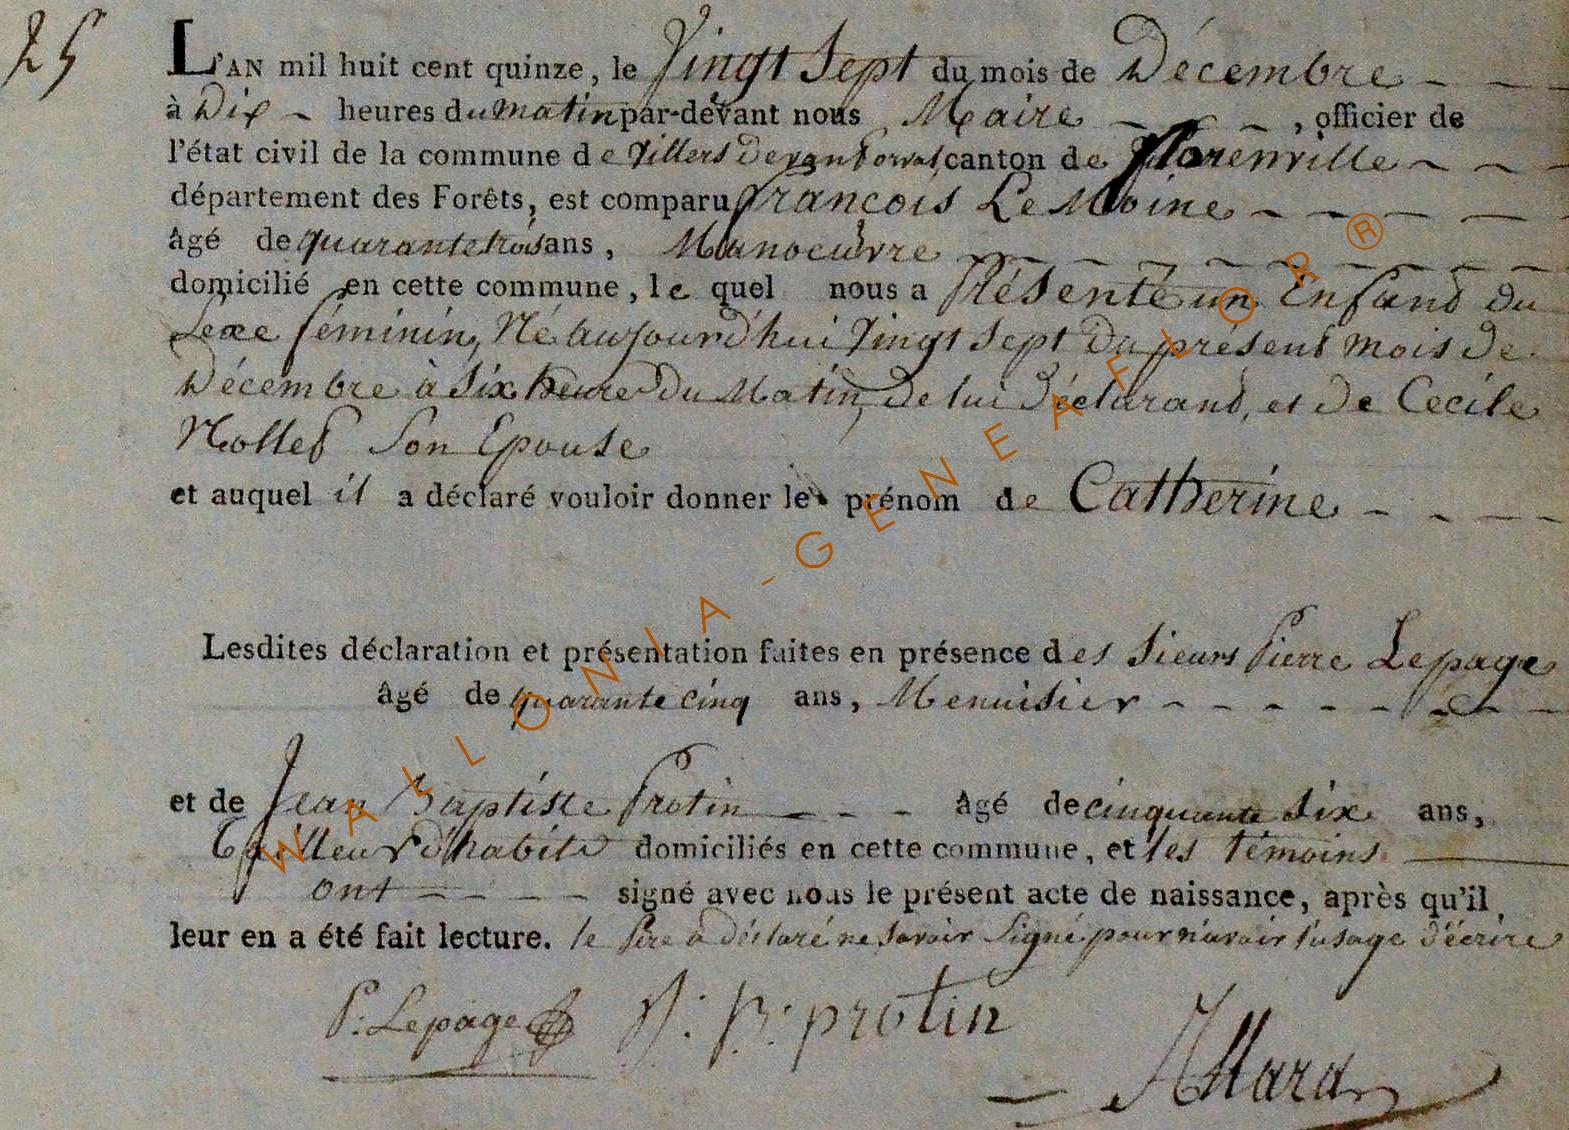 25
L'AN mil huit cent quinze, le Vingt Sept du mois de Décembre
à Dix heures du matin par-devant nous Maire, officier de
l'état civil de la commune de Villers devant orval, canton de florenville
département des Forêts, est comparu francois Le Moine
âgé de quarante trois ans, Manoeuvre
domicilié en cette commune, le quel nous a Présenté un Enfand du
Sexe féminin, Né aujourd'hui Vingt Sept du présent mois de
Décembre à Six heure du Matin, de lui déclarand, et de Cecile
Nollef Son Epouse
et auquel il a déclaré vouloir donner le prénom de Catherine
Lesdites déclaration et présentation faites en présence des Sieurs Pierre Lepage
âgé de quarante cinq ans, Menuisier
et de Jean Baptiste Protin âgé de cinquante Six ans,
tailleur d'habits domiciliés en cette commune, et les témoins
ont signé avec nous le présent acte de naissance, après qu'il
leur en a été fait lecture. le Père a déclaré ne savoir Signé pour n'avoir l'usage d'écrire
P. Lepage J. B. protin
Allard
WALLONIA-GENEAFLOR®